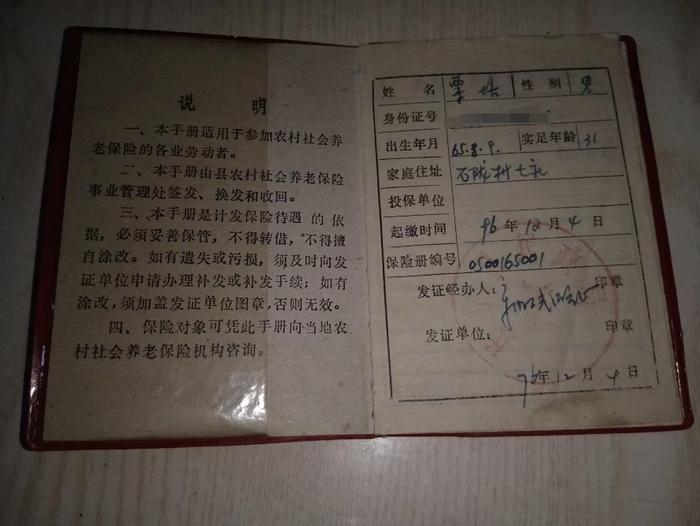 说 明
一、本手册适用于参加农村社会养
老保险的各业劳动者。
二、本手册由县农村社会养老保险
事业管理处签发、换发和收回。
三、本手册是计发保险待遇的依
据，必须妥善保管，不得转借，不得擅
自涂改。如有遗失或污损，须及时向发
证单位申请办理补发或补发手续；如有
涂改，须加盖发证单位图章，否则无效。
四、保险对象可凭此手册向当地农
村社会养老保险机构咨询。
姓 名 性 别 男
身份证号
出生年月 65.8.9. 实足年龄 31
家庭住址 石陇村七社
投保单位
起缴时间 96年12月4日
保险册编号 0500165001
发证经办人： 印章
发证单位： 印章
96年12月4日